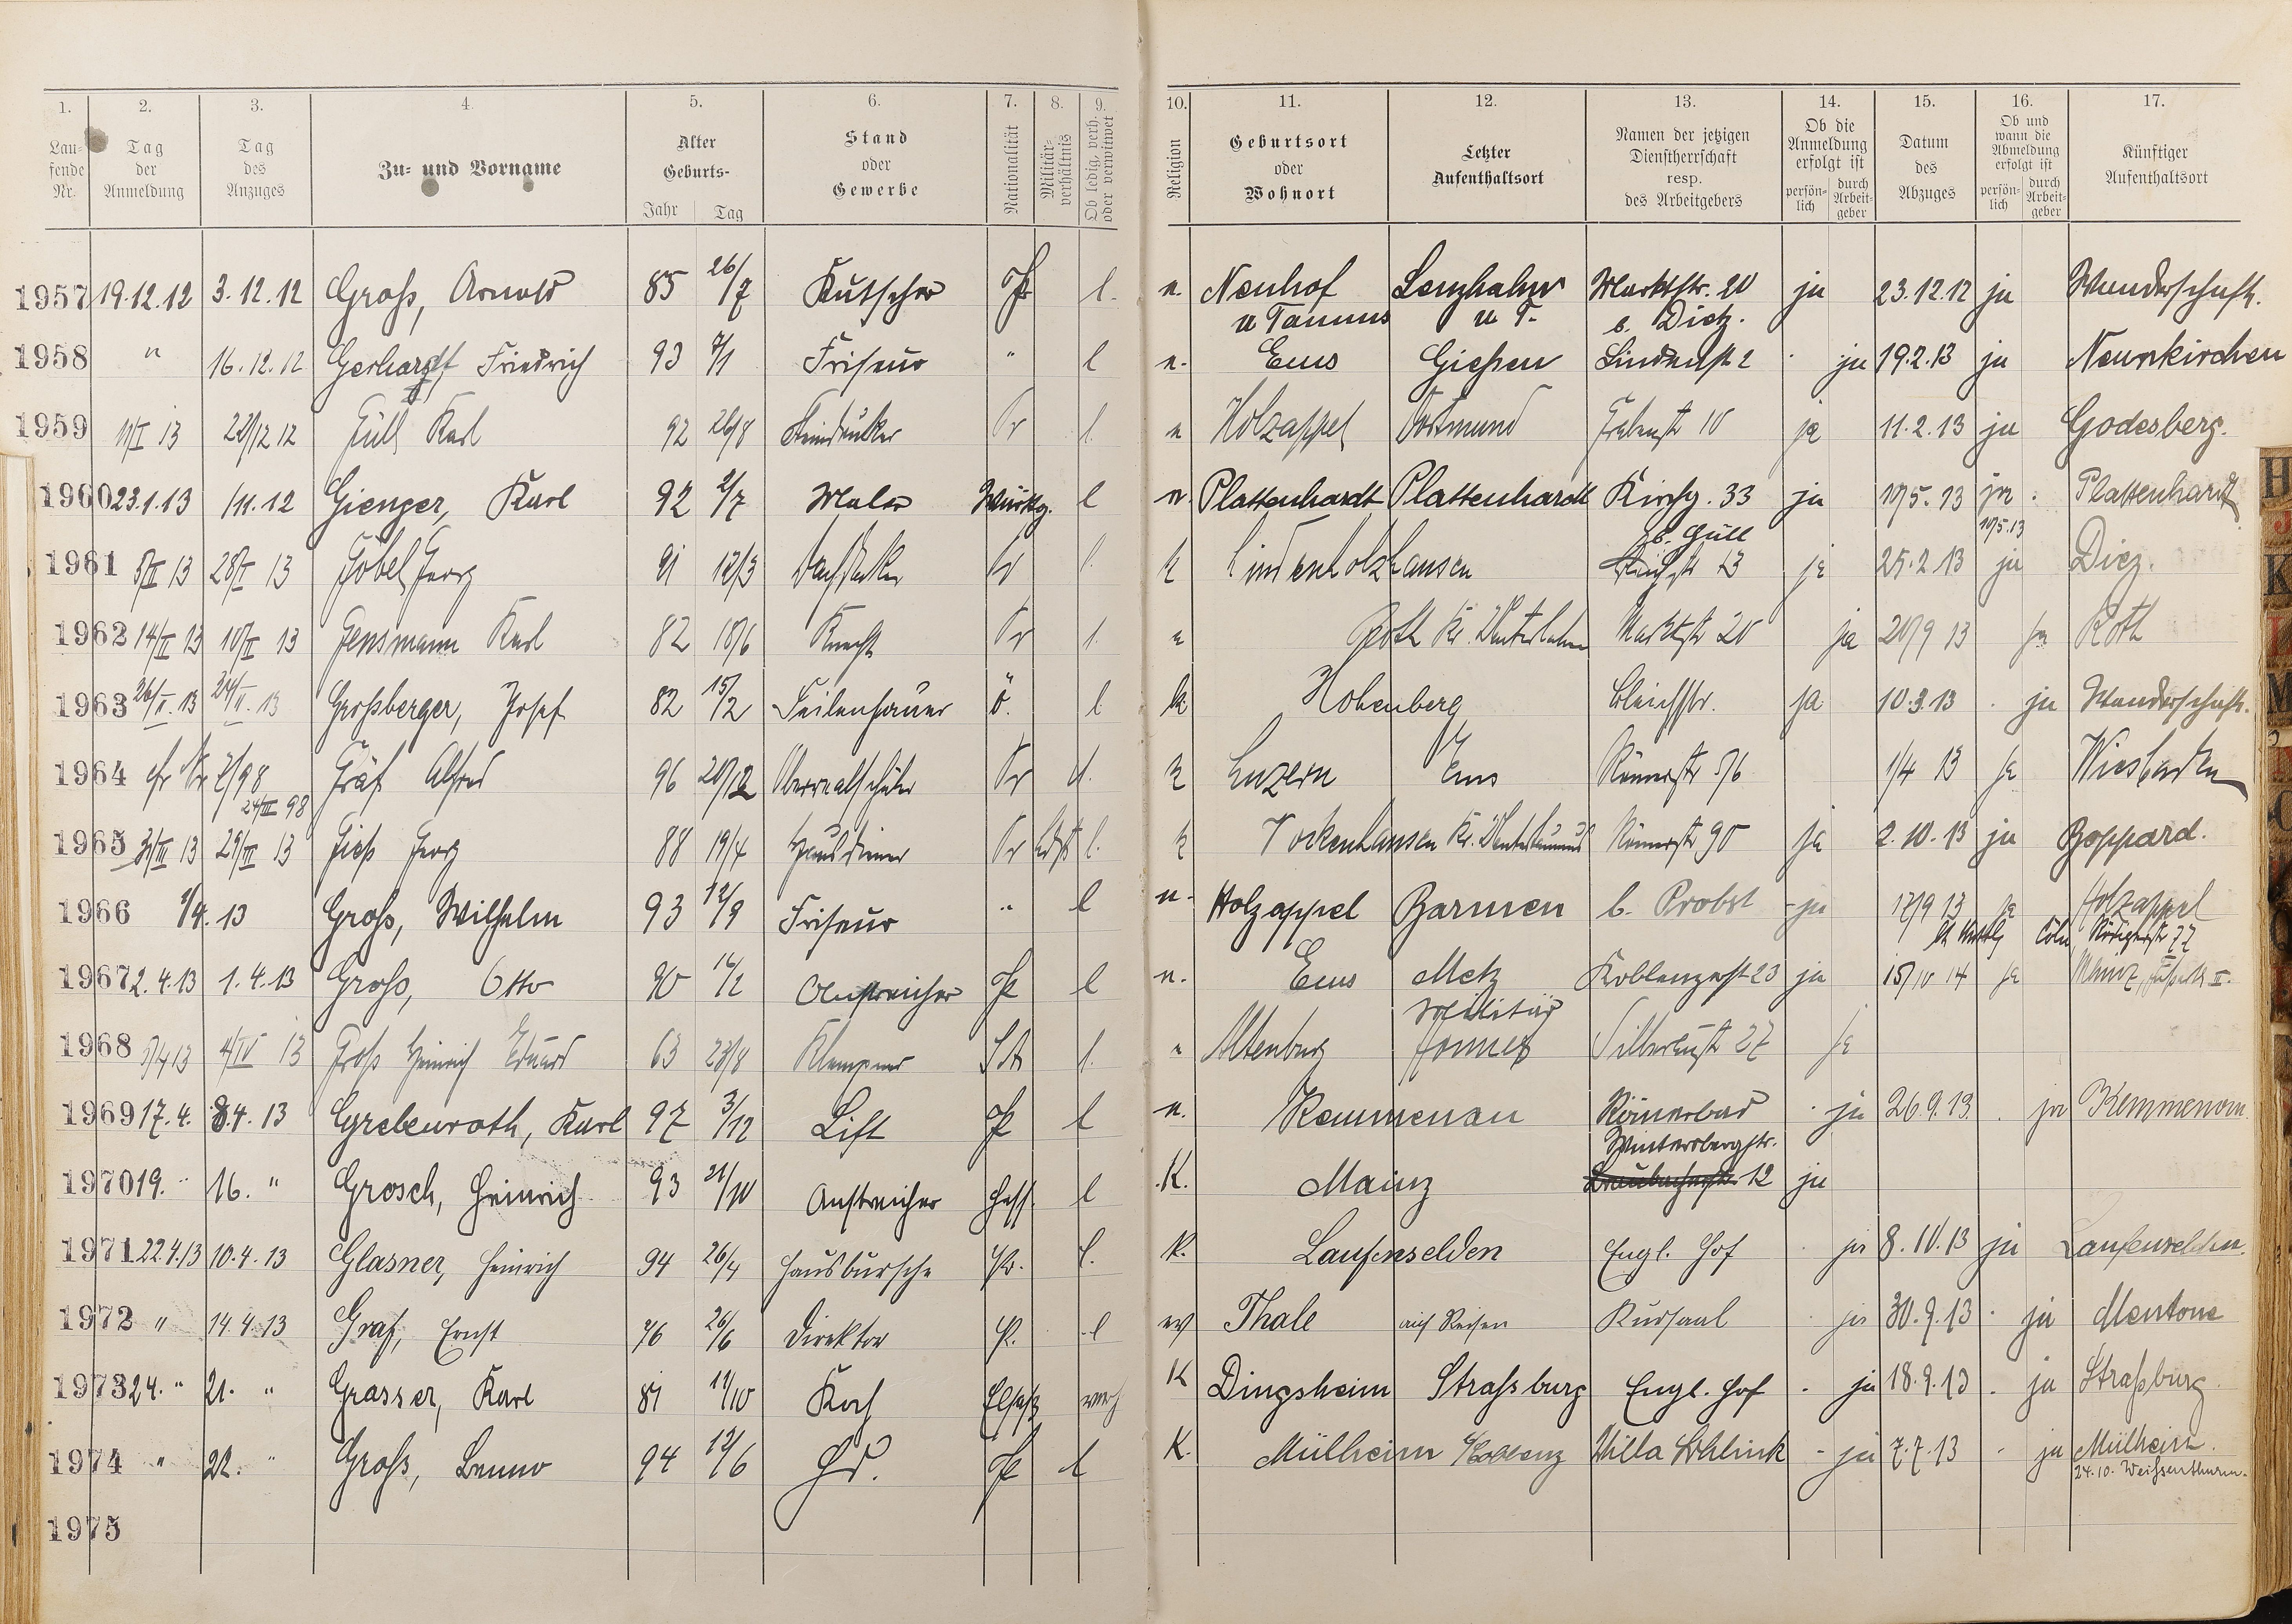 1. 2. 3. 4. 5. 6. 7. 8. 9. 10. 11. 12. 13. 14. 15. 16. 17.
Laufende Nr. Tag der Anmeldung Tag des Anzuges Zu- und Vorname Alter Geburts- Jahr Tag Stand oder Gewerbe Nationalität Militärverhältnis Ob ledig, verh. oder verwitwet Religion Geburtsort oder Wohnort Letzter Aufenthaltsort Namen der jetzigen Dienstherrschaft resp. des Arbeitgebers Ob die Anmeldung erfolgt ist persönlich durch Arbeitgeber Datum des Abzuges Ob und wann die Abmeldung erfolgt ist persönlich durch Arbeitgeber Künftiger Aufenthaltsort
1957 19.12.12 3.12.12 Groß, Arnold 85 26/7 Kutscher Pr l. Neuhof Lenzhahn Marktstr. 20 ja 23.12.12 ja Wanderschaft.
u Taunus u T. b. Dietz.
1958 " 16.12.12 Gerhardt Friedrich 93 7/1 Friseur " l Ems Gießen Lindenstr 2 ja 19.2.13 ja Neunkirchen
1959 11/I 13 12 12 Güll Karl 92 26/8 Pr l Holzappel Dortmund Grabenstr 10 ja 11.2.13 ja Godesberg.
1960 23.1.13 /11.12 Gienger, Karl 92 2/7 Maler Württg. l Plattenhardt Plattenhardt Kirchg. 33 ja 10/5.13 ja Plattenhardt
b. Güll 10/5.13
1961 5/II 13 28/I 13 Göbel Georg 91 12/3 Dachdecker Pr l k Lindenholzhausen 13 ja 25.2.13 ja Diez.
1962 14/II 13 10/II 13 Gensmann Karl 82 18/6 Knecht Pr l. Roth Kr. Unterlahn Marktstr 20 ja 20/9 13 ja Roth
1963 26/II.13 24/II.13 Großberger, Josef 82 15/2 Feilenhauer ö. l k Hohenberg Bleichstr. ja 10.3.13 ja Wanderschaft.
1964 Nr 7/98 Gräf Alfred 96 20/12 Oberrealschüler Pr l. k Luzern Ems Römerstr 56 1/4 13 ja Wiesbaden
24/III 98
1965 31/III 13 29/III 13 Gieß Georg 88 19/4 Hausdiener Pr l. k Vockenhausen Kr. Untertaunus Römerstr 90 ja 2.10.13 ja Boppard.
1966 1/4.13 Groß, Wilhelm 93 12/9 Friseur " l Holzappel Barmen b. Probst ja 17/9 13 ja Holzappel
Cöln 77
1967 2.4.13 1.4.13 Groß, Otto 90 Anstreicher Pr l Ems Metz Koblenzerstr 23 ja 15/10 14 ja Mainz, II.
Militär
1968 5/4 13 4/IV 13 Groß Heinrich Eduard 63 23/8 Klempner SA l. Altenburg Silberaustr 27 ja
1969 17.4. 8.4.13 Grebenroth, Karl 97 3/12 Lift Pr l Kemmenau Römerbad ja 26.9.13. ja Kemmenau
Wintersbergstr.
1970 19. " 16. " Grosch, Heinrich 93 21/10 Anstreicher Hess. l K. Mainz 12 ja
1971 22.4.13 10.4.13 Glasner, Heinrich 94 26/4 Hausbursche Pr. l. K. Laufenselden Engl. Hof ja 8.10.13 ja Laufenselden.
1972 " 14.4.13 Graf, Ernst 76 26/6 Direktor Pr. l ev Thale auf Reisen Kursaal ja 30.9.13 ja Mentone
1973 24. " 21. " Grasser, Karl 81 11/10 Koch Elsaß verh K Dingsheim Straßburg Engl. Hof ja 18.9.13 ja Straßburg
1974 " 22. " Groß, Benno 94 12/6 Hd. Pr l K. Mülheim b/Koblenz Villa Wohlink ja 7.7.13 ja Mülheim.
24.10. Weißenthurm.
1975
H
J
K
L
M